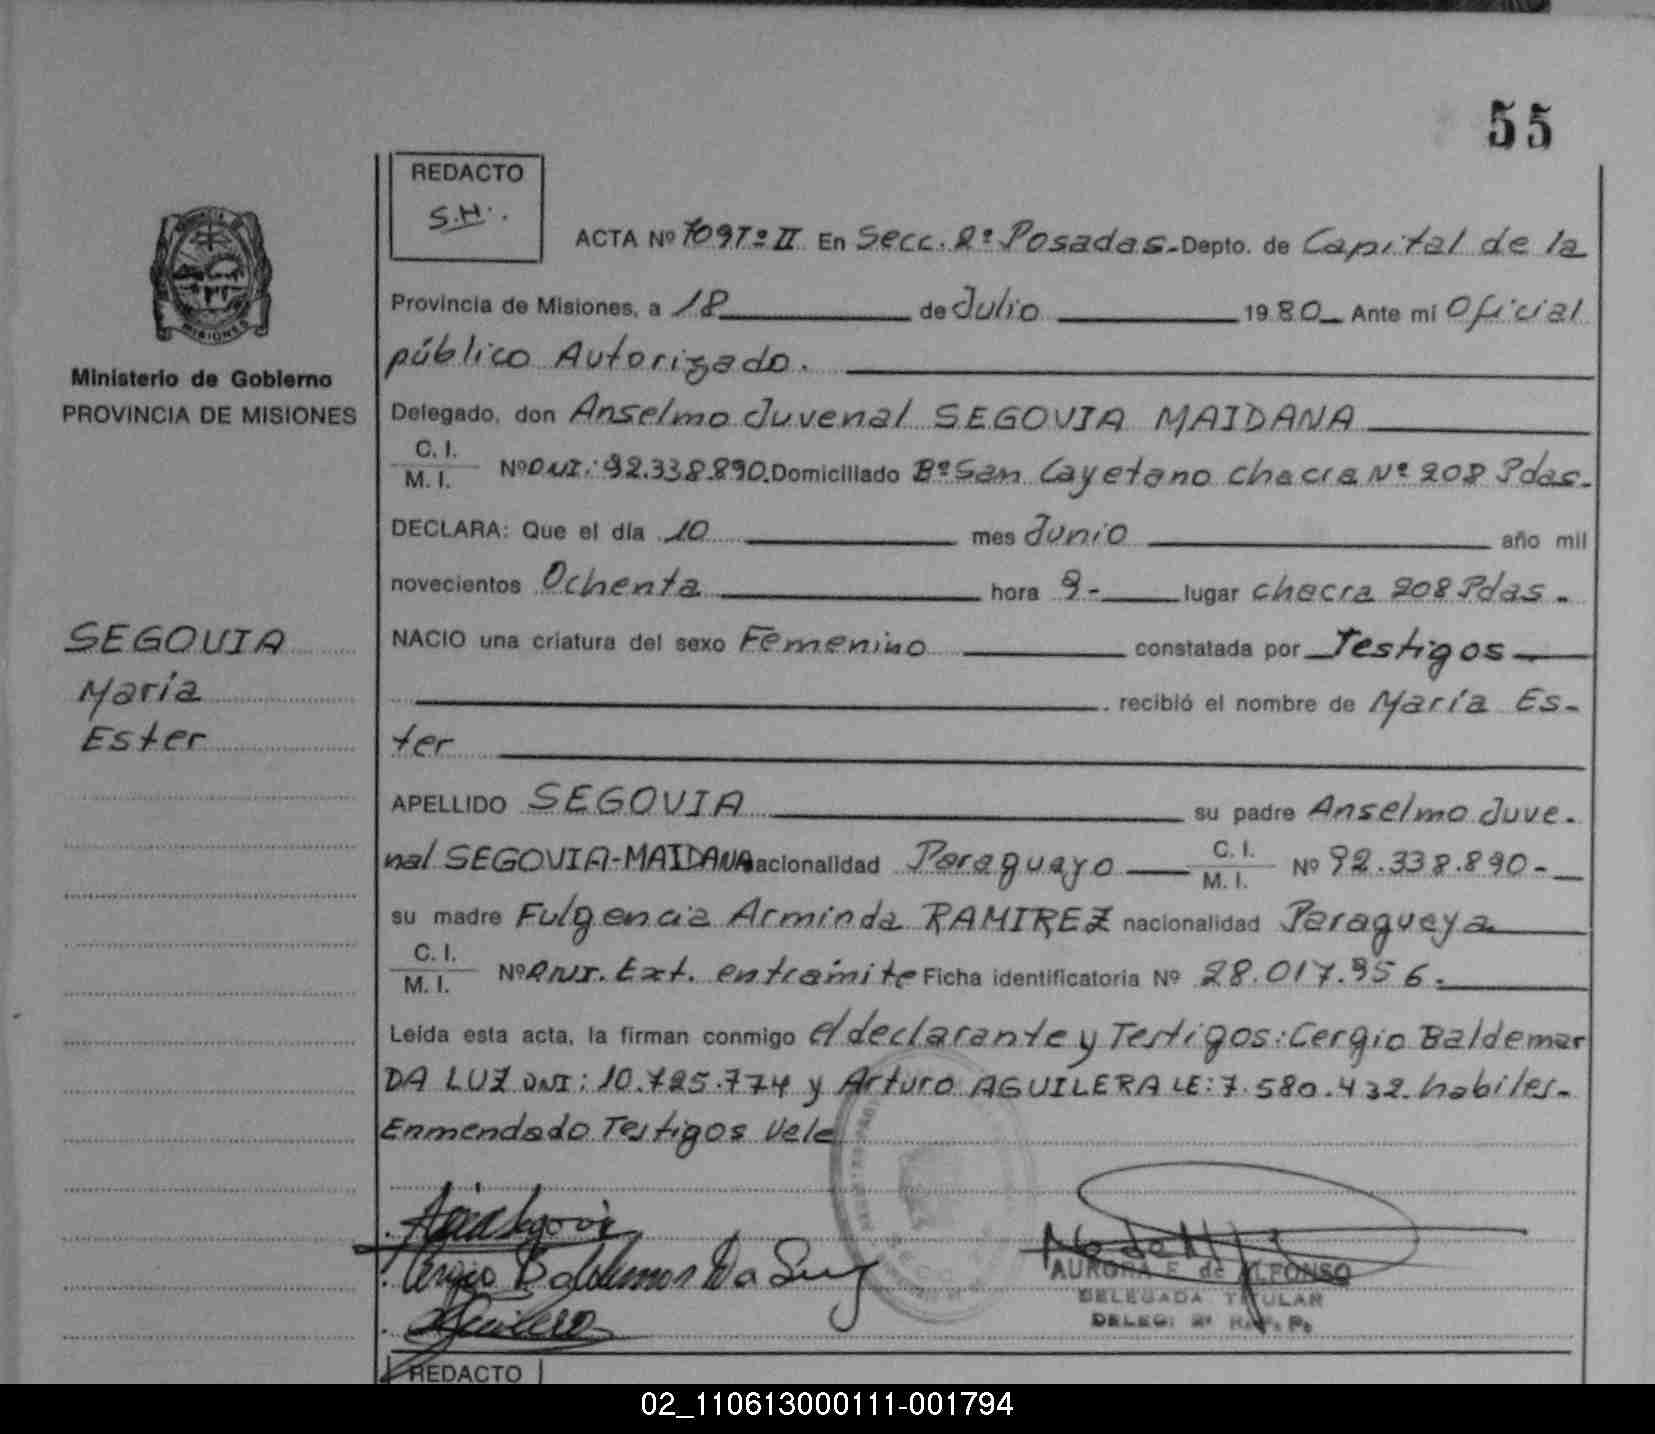 55
REDACTO
S.H.
MISIONES
Ministerio de Gobierno
PROVINCIA DE MISIONES
SEGOVIA
María
Ester
ACTA Nº 1097 Tº II En Secc. 2ª Posadas - Depto. de Capital de la
Provincia de Misiones, a 18 de Julio 1980 Ante mi Oficial
público Autorizado.
Delegado, don Anselmo Juvenal SEGOVIA MAIDANA
C. I.
M. I. Nº DNI: 92.338.890. Domiciliado Bº San Cayetano Chacra Nº 208 Pdas.
DECLARA: Que el día 10 mes Junio año mil
novecientos Ochenta hora 9- lugar chacra 208 Pdas.
NACIO una criatura del sexo Femenino constatada por Testigos
recibió el nombre de María Es-
ter
APELLIDO SEGOVIA su padre Anselmo Juve-
nal SEGOVIA-MAIDANA nacionalidad Paraguayo C. I. M. I. Nº 92.338.890-
su madre Fulgencia Arminda RAMIREZ nacionalidad Paraguaya
C. I.
M. I. Nº DNI. Ext. en trámite Ficha identificatoria Nº 28.017.956.
Leída esta acta, la firman conmigo el declarante y Testigos: Cergio Baldemar
DA LUZ DNI: 10.725.774 y Arturo AGUILERA LE: 7.580.432. habiles-
Enmendado Testigos Vale
Cergio Baldemar Da Luz
AURORA E. de ALFONSO
DELEGADA TITULAR
DELEG. 2ª R. P. P.
REDACTO
02_110613000111-001794